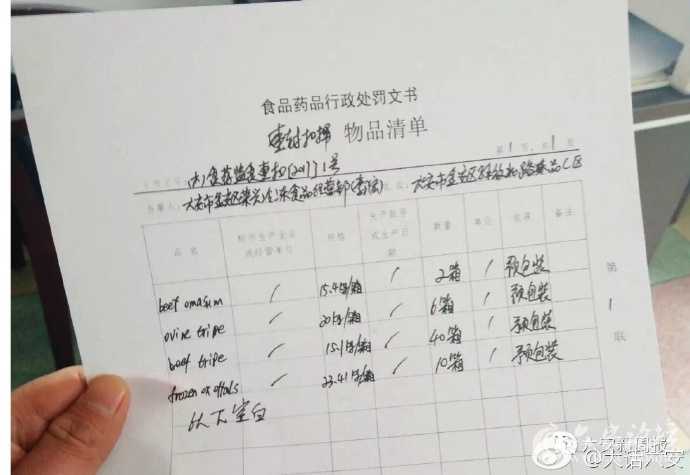 食品药品行政处罚文书
查封扣押 物品清单
第1页,共1页
(六)食药监食查扣[201 ]1号
六安市金安区荣兴冷冻食品经营部
品名 标示生产企业或经营单位 规格 生产批号或生产日期 数量 单价 包装 备注
beef omasum / 15.4kg/箱 / 2箱 / 预包装
ovine tripe / 20kg/箱 / 6箱 / 预包装
beef tripe / 15.1kg/箱 / 40箱 / 预包装
frozen ox offals / 23.41kg/箱 / 10箱 / 预包装
以下空白
第
1
联
六安新周报
@大话六安